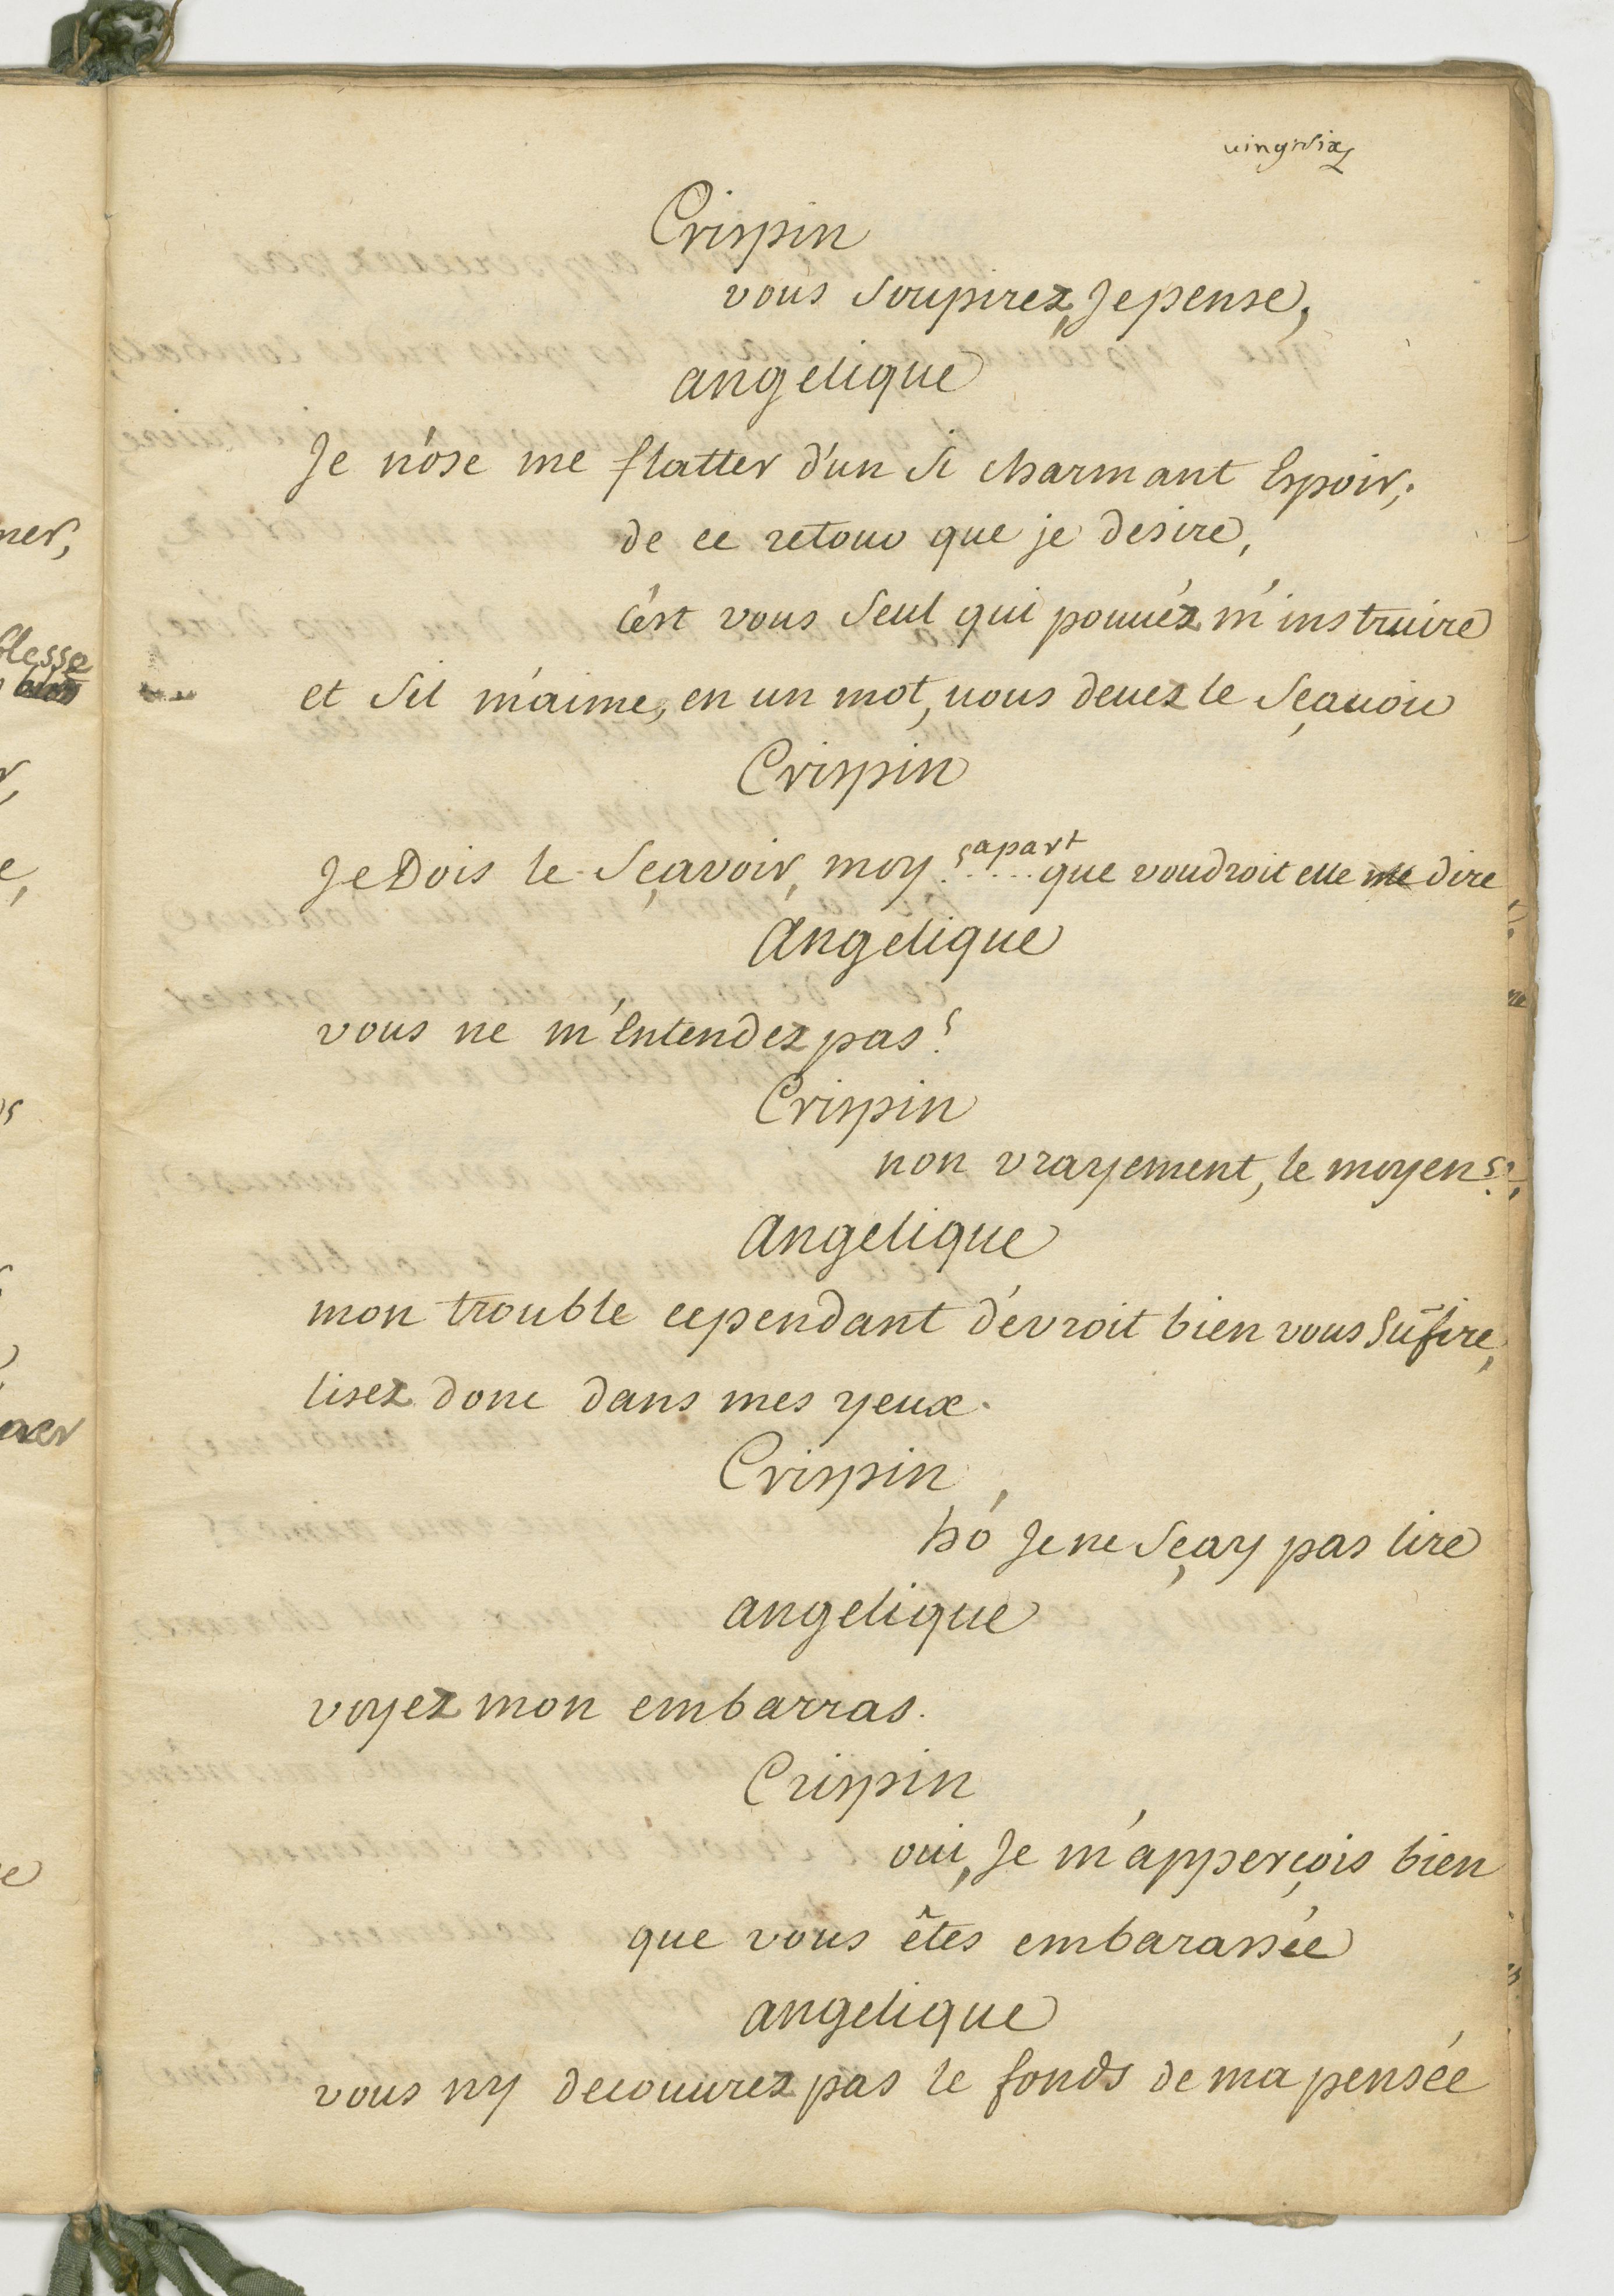 vingtsix
Crispin
vous soupirez, Je pense,
angelique
Je n'ose me flatter d'un si charmant Espoir,
de ce retour que je desire,
c'est vous seul qui pouués m'instruire
et sil m'aime, en un mot, uous deuez le sçauoir
Crispin
Je Dois le sçavoir, moy? apart .... que voudroit elle me dire
Angelique
vous ne m'Entendez pas?
Crispin
non vrayement, le moyen?
Angelique
mon trouble cependant dévroit bien vous sufire,
lisez donc dans mes yeux.
Crispin
hó Je ne sçay pas lire
angelique
voyez mon embarras.
Crispin
oui, Je m'apperçois bien
que vous êtes embarassée
angelique
vous ny decouurez pas le fonds de ma pensée
ner,
blesse
e,